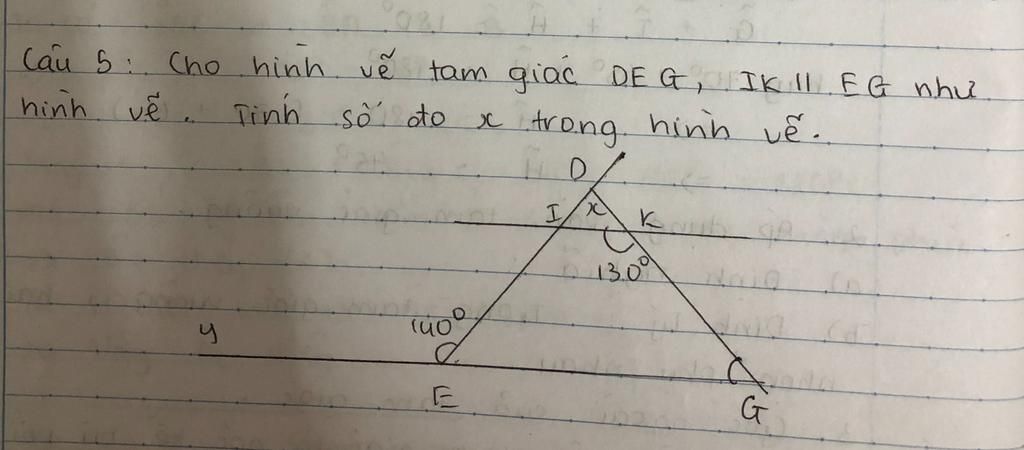 Câu 5: Cho hình vẽ tam giác DEG, IK || EG như
hình vẽ. Tính số đo x trong hình vẽ.
D
I x K
130°
140°
y
E
G